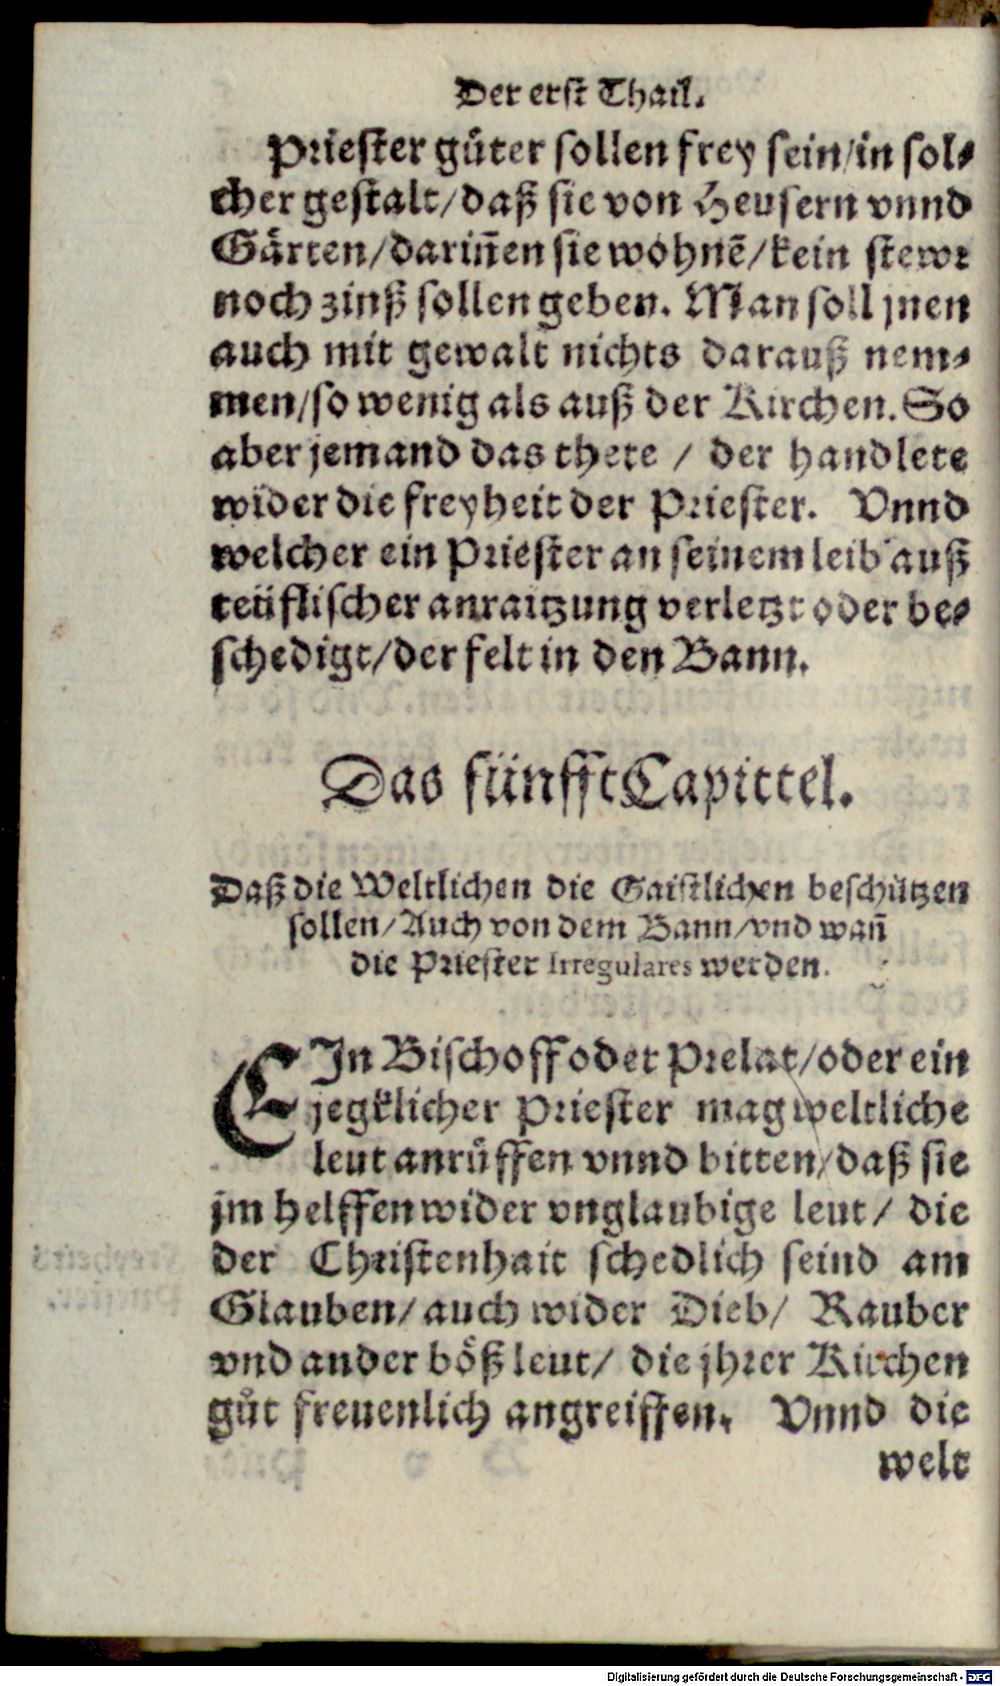 Der erst Thail.
Priester gůter sollen frey sein/in sol⸗
cher gestalt/daß sie von Heusern vnnd
Gärten/dariñen sie wohnē/kein stewr
noch zinß sollen geben. Man soll jnen
auch mit gewalt nichts darauß nem⸗
men/so wenig als auß der Kirchen. So
aber jemand das thete / der handlete
wider die freyheit der Priester. Vnnd
welcher ein Priester an seinem leib auß
teüflischer anraitzung verletzt oder be⸗
schedigt/der felt in den Bann.
Das fünfft Capittel.
Daß die Weltlichen die Gaistlichen beschützen
sollen/Auch von dem Bann/vnd wañ
die Priester Irregulares werden.
EIn Bischoff oder Prelat/oder ein
jegklicher Priester mag weltliche
leut anrůffen vnnd bitten/daß sie
jm helffen wider vnglaubige leut/ die
der Christenhait schedlich seind am
Glauben/auch wider Dieb/ Rauber
vnd ander böß leut/ die jhrer Kirchen
gůt freuenlich angreiffen. Vnnd die
welt
Digitalisierung gefördert durch die Deutsche Forschungsgemeinschaft - DFG